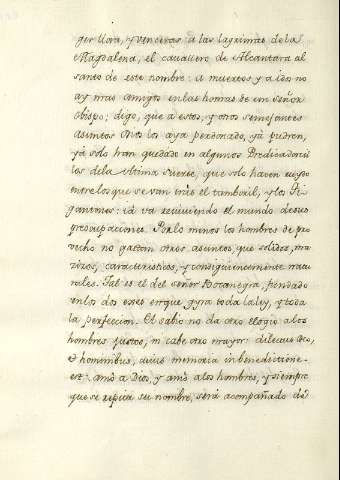 ger llora, y vencerás a las lagrimas de la
Magdalena, el cavallero de Alcantara al
santo de este nombre: a muertos y a idos no
ay mas amigos en las honras de un señor
obispo; digo, que a estos, y otros semejantes
asuntos Dios los aya perdonado, yà pudren,
yà solo han quedado en algunos Predicadoril
los de la ultima suerte, que solo hacen ruydo
entre los que se van tràs el tamboril, y los Gi
gantones: và reviviendo el mundo de sus
preocupaciones. Por lo menos los hombres de pro
vecho no gastan otros asuntos, que solidos, ma
zizos, caracteristicos, y consiguientemente natu
rales. Tal es el del señor Bocanegra, fundado
en los dos exes en que gyra toda la ley, y toda
la perfeccion. El sabio no da otro elogio a los
hombres justos, ni cabe otro mayor: dilectus Deo,
et hominibus, cuius memoria in benedictione
est: amò a Dios, y amò a los hombres, y siempre
que se repita su nombre, serà acompañado de